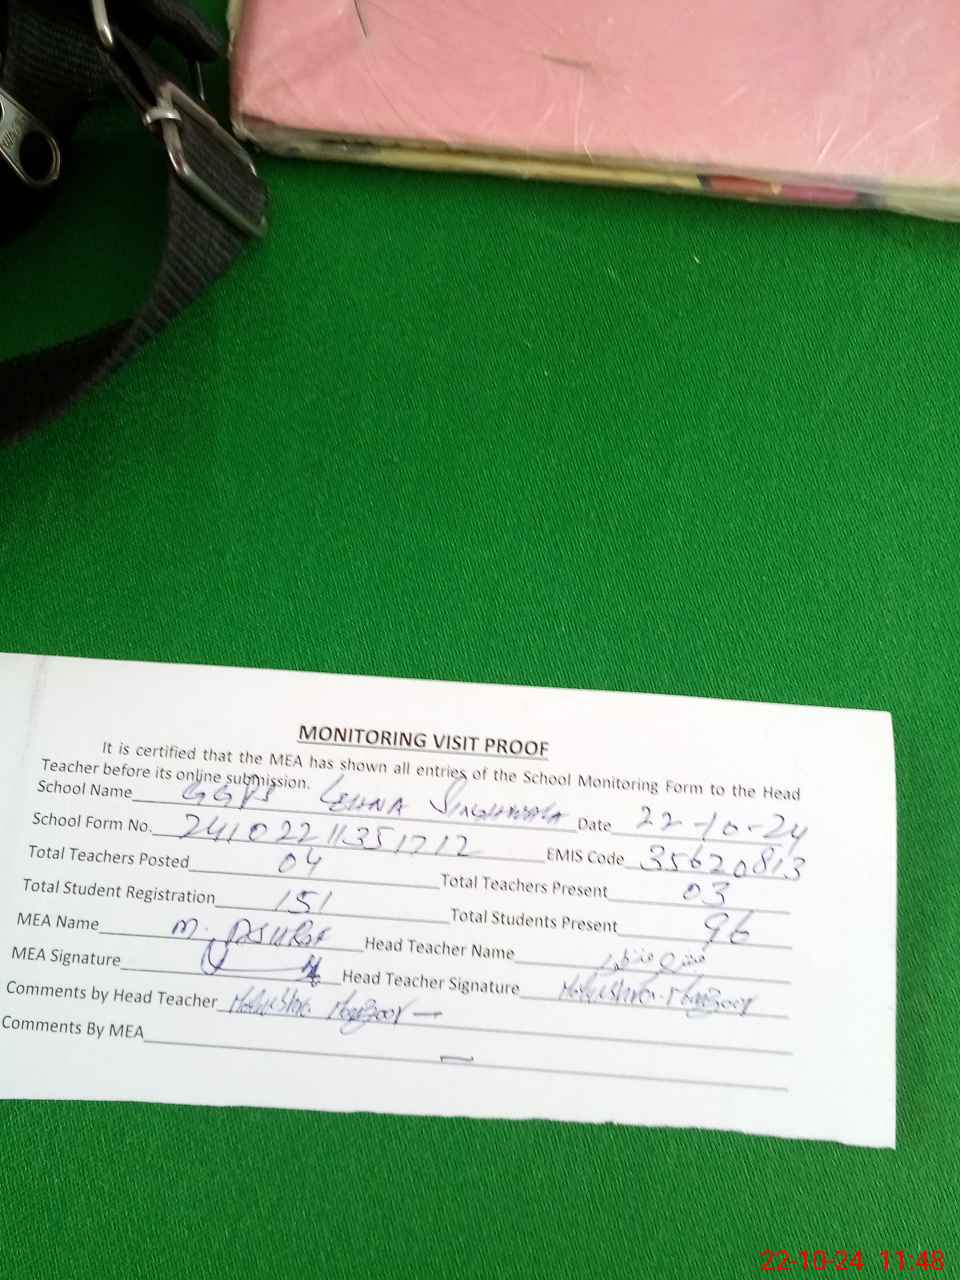 MONITORING VISIT PROOF
It is certified that the MEA has shown all entries of the School Monitoring Form to the Head
Teacher before its online submission.
School Name GGPS LEHNA SINGHWALA Date 22-10-24
School Form No. 24102211351712 EMIS Code 35620813
Total Teachers Posted 04 Total Teachers Present 03
Total Student Registration 151 Total Students Present 96
MEA Name M. Head Teacher Name
MEA Signature Head Teacher Signature
Comments by Head Teacher
Comments By MEA —
22-10-24 11:48